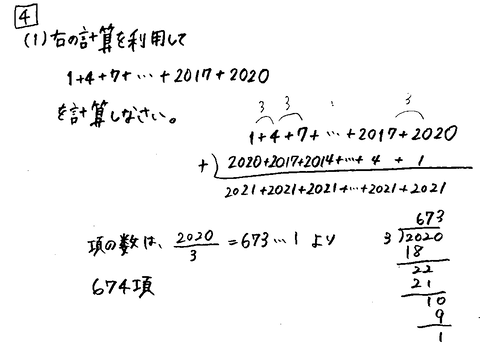 4
(1) 右の計算を利用して
1+4+7+ … +2017+2020
を計算しなさい。
3 3 3
1+4+7+ … +2017+2020
+) 2020+2017+2014+…+ 4 + 1
2021+2021+2021+…+2021+2021
項の数は、2020/3 =673…1 より
674項
673
3)2020
18
22
21
10
9
1